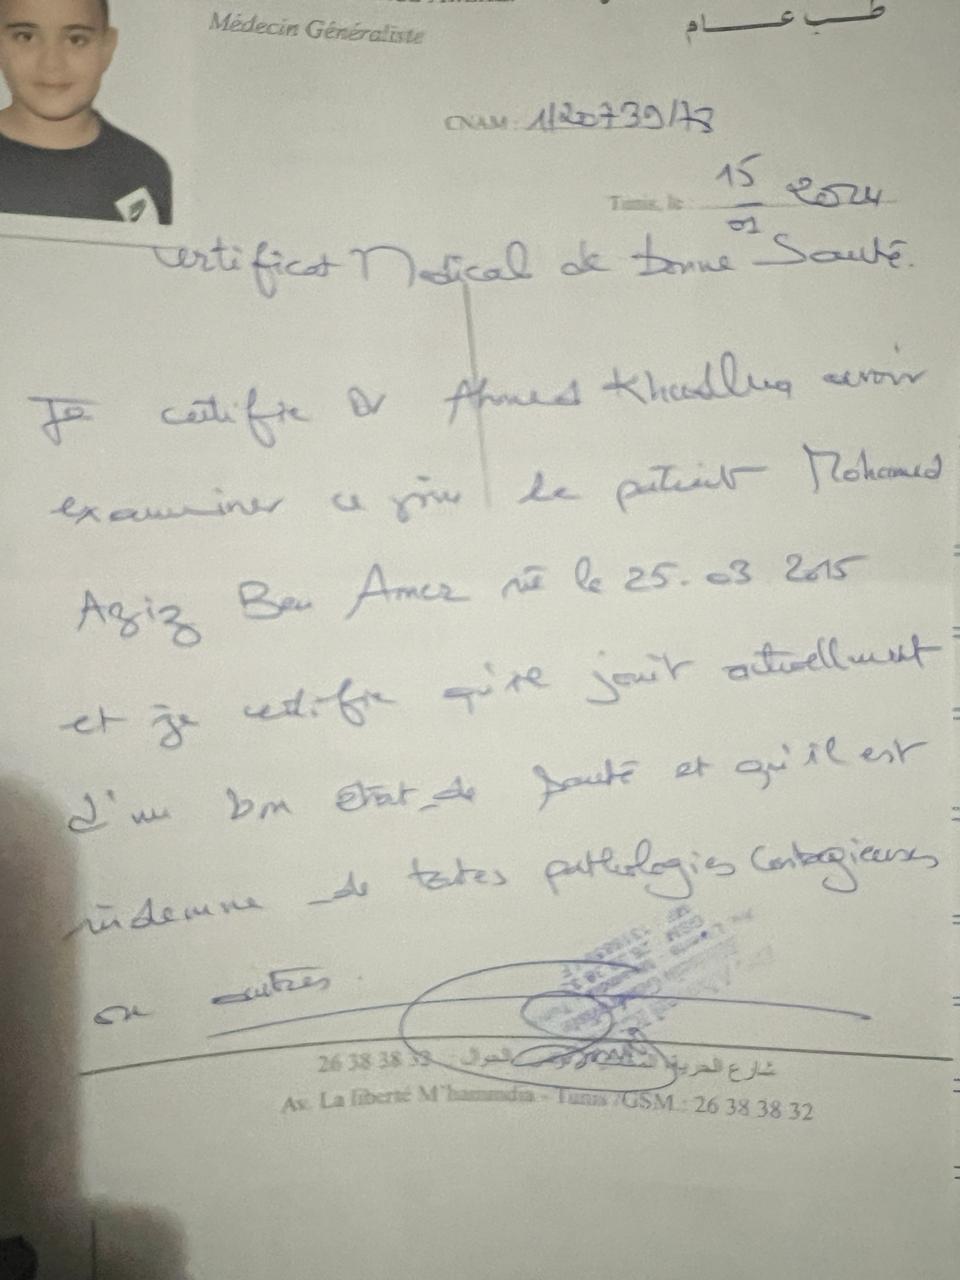 Médecin Généraliste
طب عام
CNAM: 1/20739/73
Tunis, le : 15/01 2024
Certificat Médical de bonne Santé.
Je certifie Dr Ahmed avoir
examiner ce jour le patient Mohamed
Aziz Ben Amer né le 25.03 2015
et je certifie qu'il jouit actuellement
d'un bon état de santé et qu'il est
indemne de toutes pathologies contagieuses
ou autres.
شارع الحرية الجوال : 26 38 38
Av. La liberté M'hamdia - Tunis /GSM.: 26 38 38 32